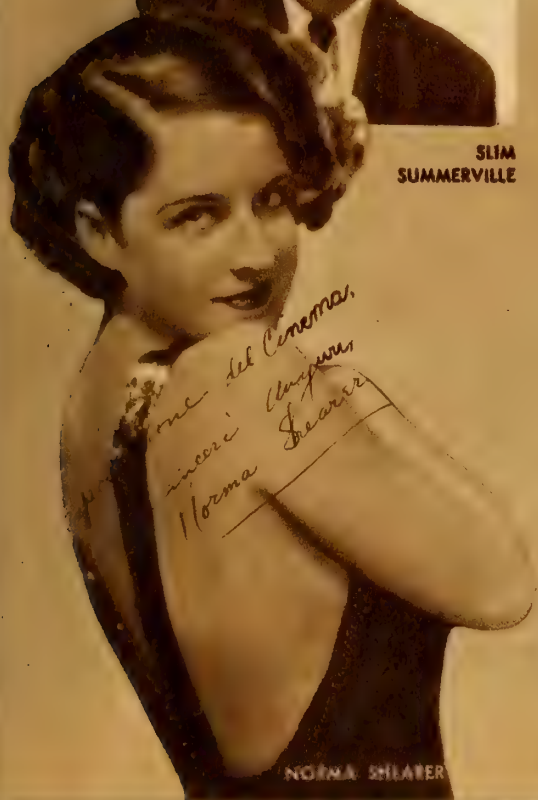 SLIM
SUMMERVILLE
del Cinema,
Auguri,
Norma Shearer
NORMA SHEARER